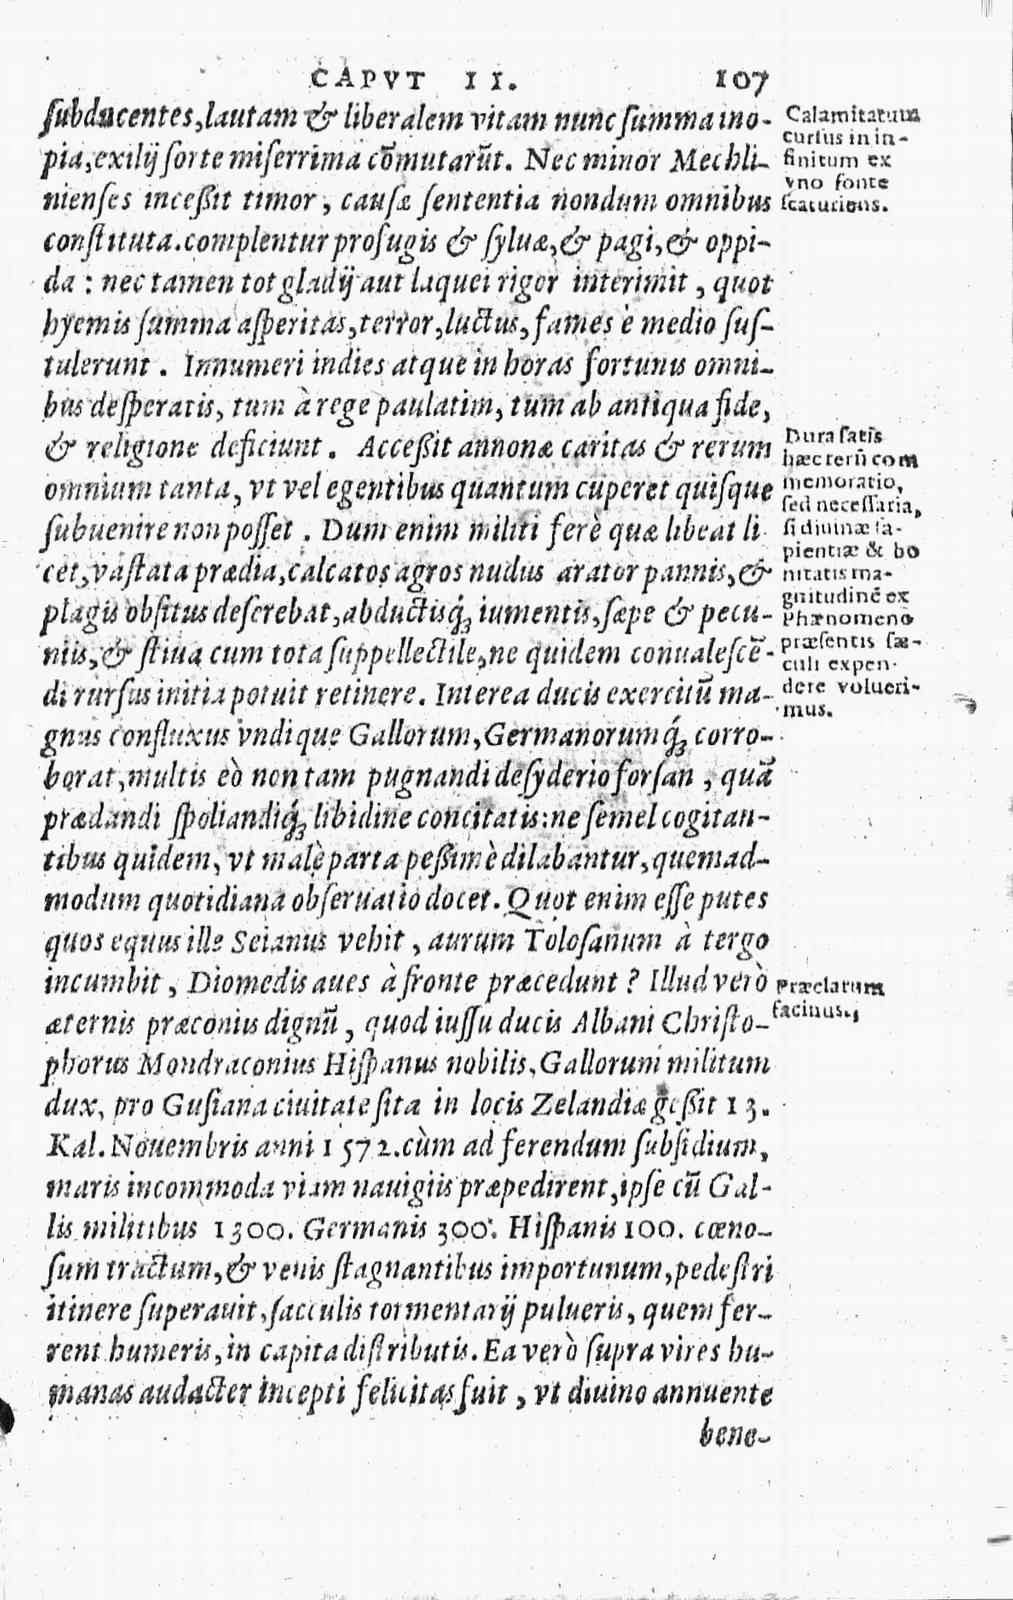 CAPVT II. 107
subducentes, lautam & liberalem vitam nunc summa ino-
pia, exilij sorte miserrima cōmutarūt. Nec minor Mechli-
nienses incessit timor, causæ sententia nondum omnibus
constituta. complentur profugis & syluæ, & pagi, & oppi-
da: nec tamen tot gladij aut laquei rigor interimit, quot
hyemis summa asperitas, terror, luctus, fames è medio sus-
tulerunt. Innumeri indies atque in horas fortunis omni-
bus desperatis, tum à rege paulatim, tum ab antiqua fide,
& religione deficiunt. Accessit annonæ caritas & rerum
omnium tanta, vt vel egentibus quantum cuperet quisque
subuenire non posset. Dum enim militi ferè quæ libeat li
cet, vastata prædia, calcatos agros nudus arator pannis, &
plagis obsitus deserebat, abductisq́; iumentis, sæpe & pecu-
niis, & stiua cum tota suppellectile, ne quidem conualescē-
di rursus initia potuit retinere. Interea ducis exercitū ma-
gnus confluxus vndique Gallorum, Germanorumq́; corro-
borat, multis eò non tam pugnandi desyderio forsan, quā
prædandi spoliandiq́; libidine concitatis: ne semel cogitan-
tibus quidem, vt malè parta pessimè dilabantur, quemad-
modum quotidiana obseruatio docet. Quot enim esse putes
quos equus ille Seianus vehit, aurum Tolosanum à tergo
incumbit, Diomedis aues à fronte præcedunt? Illud verò
æternis præconiis dignū, quod iussu ducis Albani Christo-
phorus Mondraconius Hispanus nobilis, Gallorum militum
dux, pro Gusiana ciuitate sita in locis Zelandiæ gessit 13.
Kal. Nouembris anni 1572. cùm ad ferendum subsidium,
maris incommoda viam nauigiis præpedirent, ipse cū Gal-
lis militibus 1300. Germanis 300. Hispanis 100. cœno-
sum tractum, & venis stagnantibus importunum, pedestri
itinere superauit, sacculis tormentarij pulueris, quem fer-
rent humeris, in capita distributis. Ea verò supra vires hu-
manas audacter incepti felicitas fuit, vt diuino annuente
bene-
Calamitatum
cursus in in-
finitum ex
vno fonte
scaturiens.
Dura satis
hæc rerū com
memoratio,
sed necessaria,
si diuinæ sa-
pientiæ & bo
nitatis ma-
gnitudinē ex
Phænomeno
præsentis sæ-
culi expen-
dere volueri-
mus.
Præclarum
facinus.